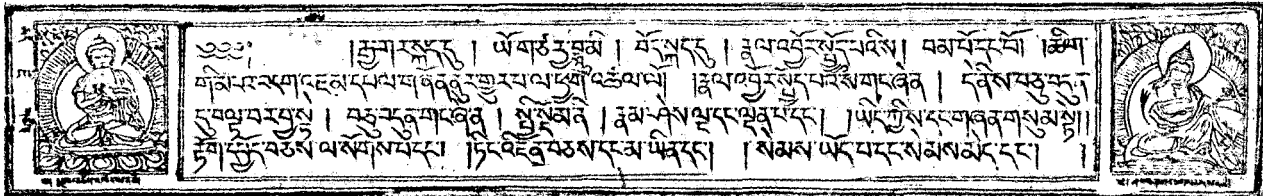 ༄༅༅། །རྒྱ་གར་སྐད་དུ། ཡོ་གཙརྻ་བྷཱུ་མི། བོད་སྐད་དུ། རྣལ་འབྱོར་སྤྱོད་པའི་ས། བམ་པོ་དང་པོ། །ཚིག་
འཇམ་དཔལ་གཞོན་ནུར་གྱུར་པ་ལ་ཕྱག་འཚལ་ལོ། །རྣལ་འབྱོར་སྤྱོད་པའི་ས་གང་ཞེ་ན། དེ་ནི་ས་བཅུ་བདུན་
དུ་བལྟ་བར་བྱ་སྟེ། བཅུ་བདུན་གང་ཞེ་ན། སྤྱི་སྡོམ་ནི། རྣམ་ཤེས་ལྔ་དང་ལྡན་པ་དང་། །ཡིད་ཀྱི་ས་དང་གཞན་གསུམ་སྟེ།།
རྟོག་དཔྱོད་བཅས་ལ་སོགས་པ་དང་། །ཏིང་འཛིན་བཅས་དང་མ་ཡིན་དང་། །སེམས་ཡོད་པ་དང་སེམས་མེད་དང་། །